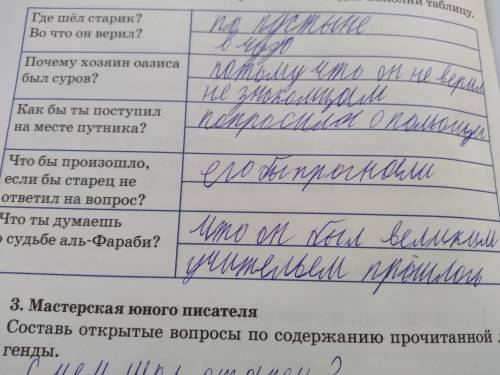 заполни таблицу.
Где шёл старик?
Во что он верил?
по пустыне
в чудо
Почему хозяин оазиса
был суров?
потому что он не верил
не знакомцам
Как бы ты поступил
на месте путника?
попросился о помощи
Что бы произошло,
если бы старец не
ответил на вопрос?
его бы прогнали
Что ты думаешь
о судьбе аль-Фараби?
что он был великим
учительем прошлого
3. Мастерская юного писателя
Составь открытые вопросы по содержанию прочитанной
генды.